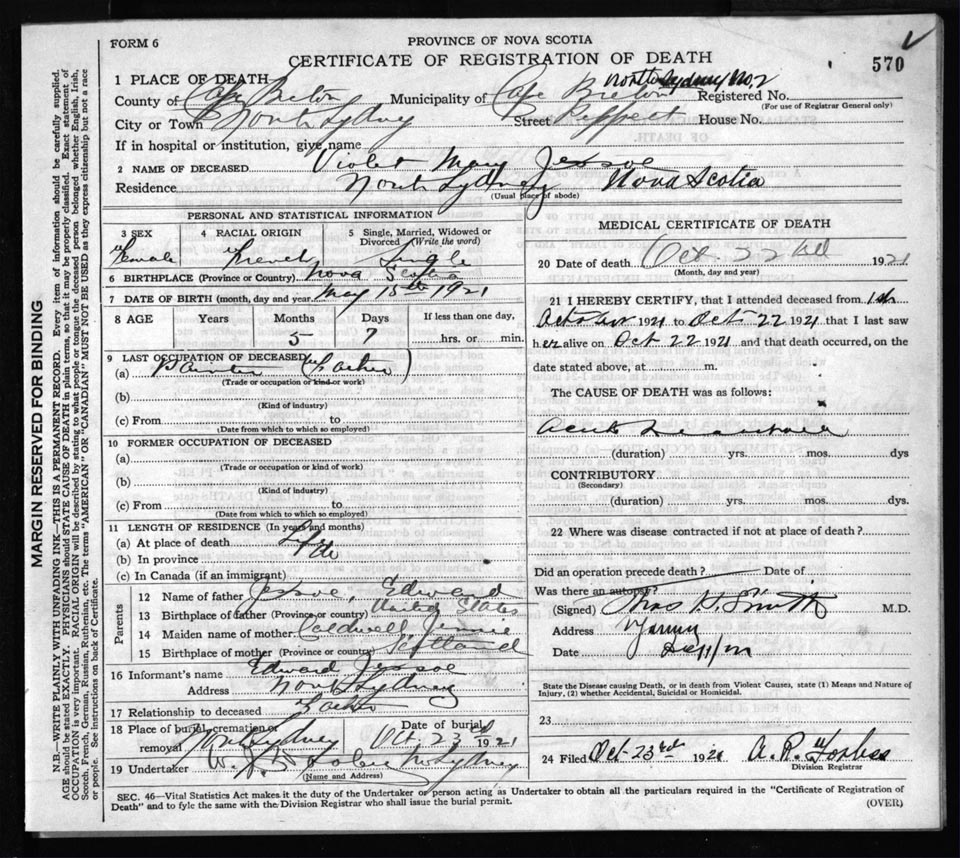 FORM 6
PROVINCE OF NOVA SCOTIA
CERTIFICATE OF REGISTRATION OF DEATH
570
1 PLACE OF DEATH
North Sydney No. 2
County of Cape Breton Municipality of Cape Breton Registered No.
(For use of Registrar General only)
City or Town North Sydney Street House No.
If in hospital or institution, give name
2 NAME OF DECEASED Violet Mary Jessoe
Residence North Sydney Nova Scotia
(Usual place of abode)
PERSONAL AND STATISTICAL INFORMATION
3 SEX 4 RACIAL ORIGIN 5 Single, Married, Widowed or Divorced (Write the word)
Female French Single
6 BIRTHPLACE (Province or Country) Nova Scotia
7 DATE OF BIRTH (month, day and year) May 15th 1921
8 AGE Years Months Days If less than one day,
5 7 hrs. or min.
9 LAST OCCUPATION OF DECEASED
(a) Painter (Father)
(Trade or occupation or kind or work)
(b)
(Kind of industry)
(c) From to
(Date from which to which so employed)
10 FORMER OCCUPATION OF DECEASED
(a)
(Trade or occupation or kind of work)
(b)
(Kind of industry)
(c) From to
(Date from which to which so employed)
11 LENGTH OF RESIDENCE (In years and months)
(a) At place of death Life
(b) In province do
(c) In Canada (if an immigrant)
Parents
12 Name of father Jessoe, Edward
13 Birthplace of father (Province or country) United States
14 Maiden name of mother Caldwell Jennie
15 Birthplace of mother (Province or country) Scotland
16 Informant's name Edward Jessoe
Address North Sydney
17 Relationship to deceased Father
18 Place of burial, cremation or removal Date of burial
North Sydney Oct. 23rd 1921
19 Undertaker N. Sydney
(Name and Address)
MEDICAL CERTIFICATE OF DEATH
20 Date of death Oct. 22nd 1921
(Month, day and year)
21 I HEREBY CERTIFY, that I attended deceased from 1st
October 1921 to Oct 22 1921 that I last saw
her alive on Oct 22 1921 and that death occurred, on the
date stated above, at m.
The CAUSE OF DEATH was as follows:
Acute
(duration) yrs. mos. dys
CONTRIBUTORY
(Secondary)
(duration) yrs. mos. dys.
22 Where was disease contracted if not at place of death?
Did an operation precede death? Date of
Was there an autopsy?
(Signed) M.D.
Address
Date
State the Disease causing Death, or in death from Violent Causes, state (1) Means and Nature of Injury, (2) whether Accidental, Suicidal or Homicidal.
23
24 Filed Oct 23rd 1921 A. R. Forbes
Division Registrar
SEC. 46—Vital Statistics Act makes it the duty of the Undertaker or person acting as Undertaker to obtain all the particulars required in the "Certificate of Registration of
Death" and to fyle the same with the Division Registrar who shall issue the burial permit.
(OVER)
MARGIN RESERVED FOR BINDING
N.B.—WRITE PLAINLY WITH UNFADING INK—THIS IS A PERMANENT RECORD. Every item of information should be carefully supplied.
AGE should be stated EXACTLY. PHYSICIANS should STATE CAUSE OF DEATH in plain terms, so that it may be properly classified. Exact statement of
OCCUPATION is very important. RACIAL ORIGIN will be described by stating to what people or tongue the deceased person belonged whether English, Irish,
Scotch, French, German, Russian, Ruthenian, etc. The terms "AMERICAN" OR "CANADIAN" MUST NOT BE USED as they express citizenship but not a race
or people. See instructions on back of Certificate.